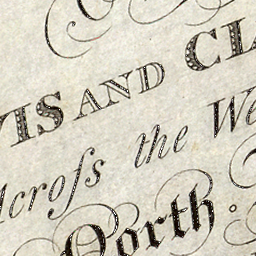 VIS AND CLA
Acroſs the We
North